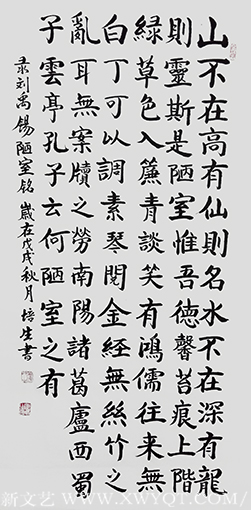 山不在高有仙則名水不在深有龍
則靈斯是陋室惟吾德馨苔痕上階
綠草色入簾青談笑有鴻儒往來無
白丁可以調素琴閱金經無絲竹之
亂耳無案牘之勞南陽諸葛廬西蜀
子雲亭孔子云何陋室之有
录刘禹锡陋室铭 歲在戊戌秋月培生書
新文艺 / WWW.XWYQT.COM/